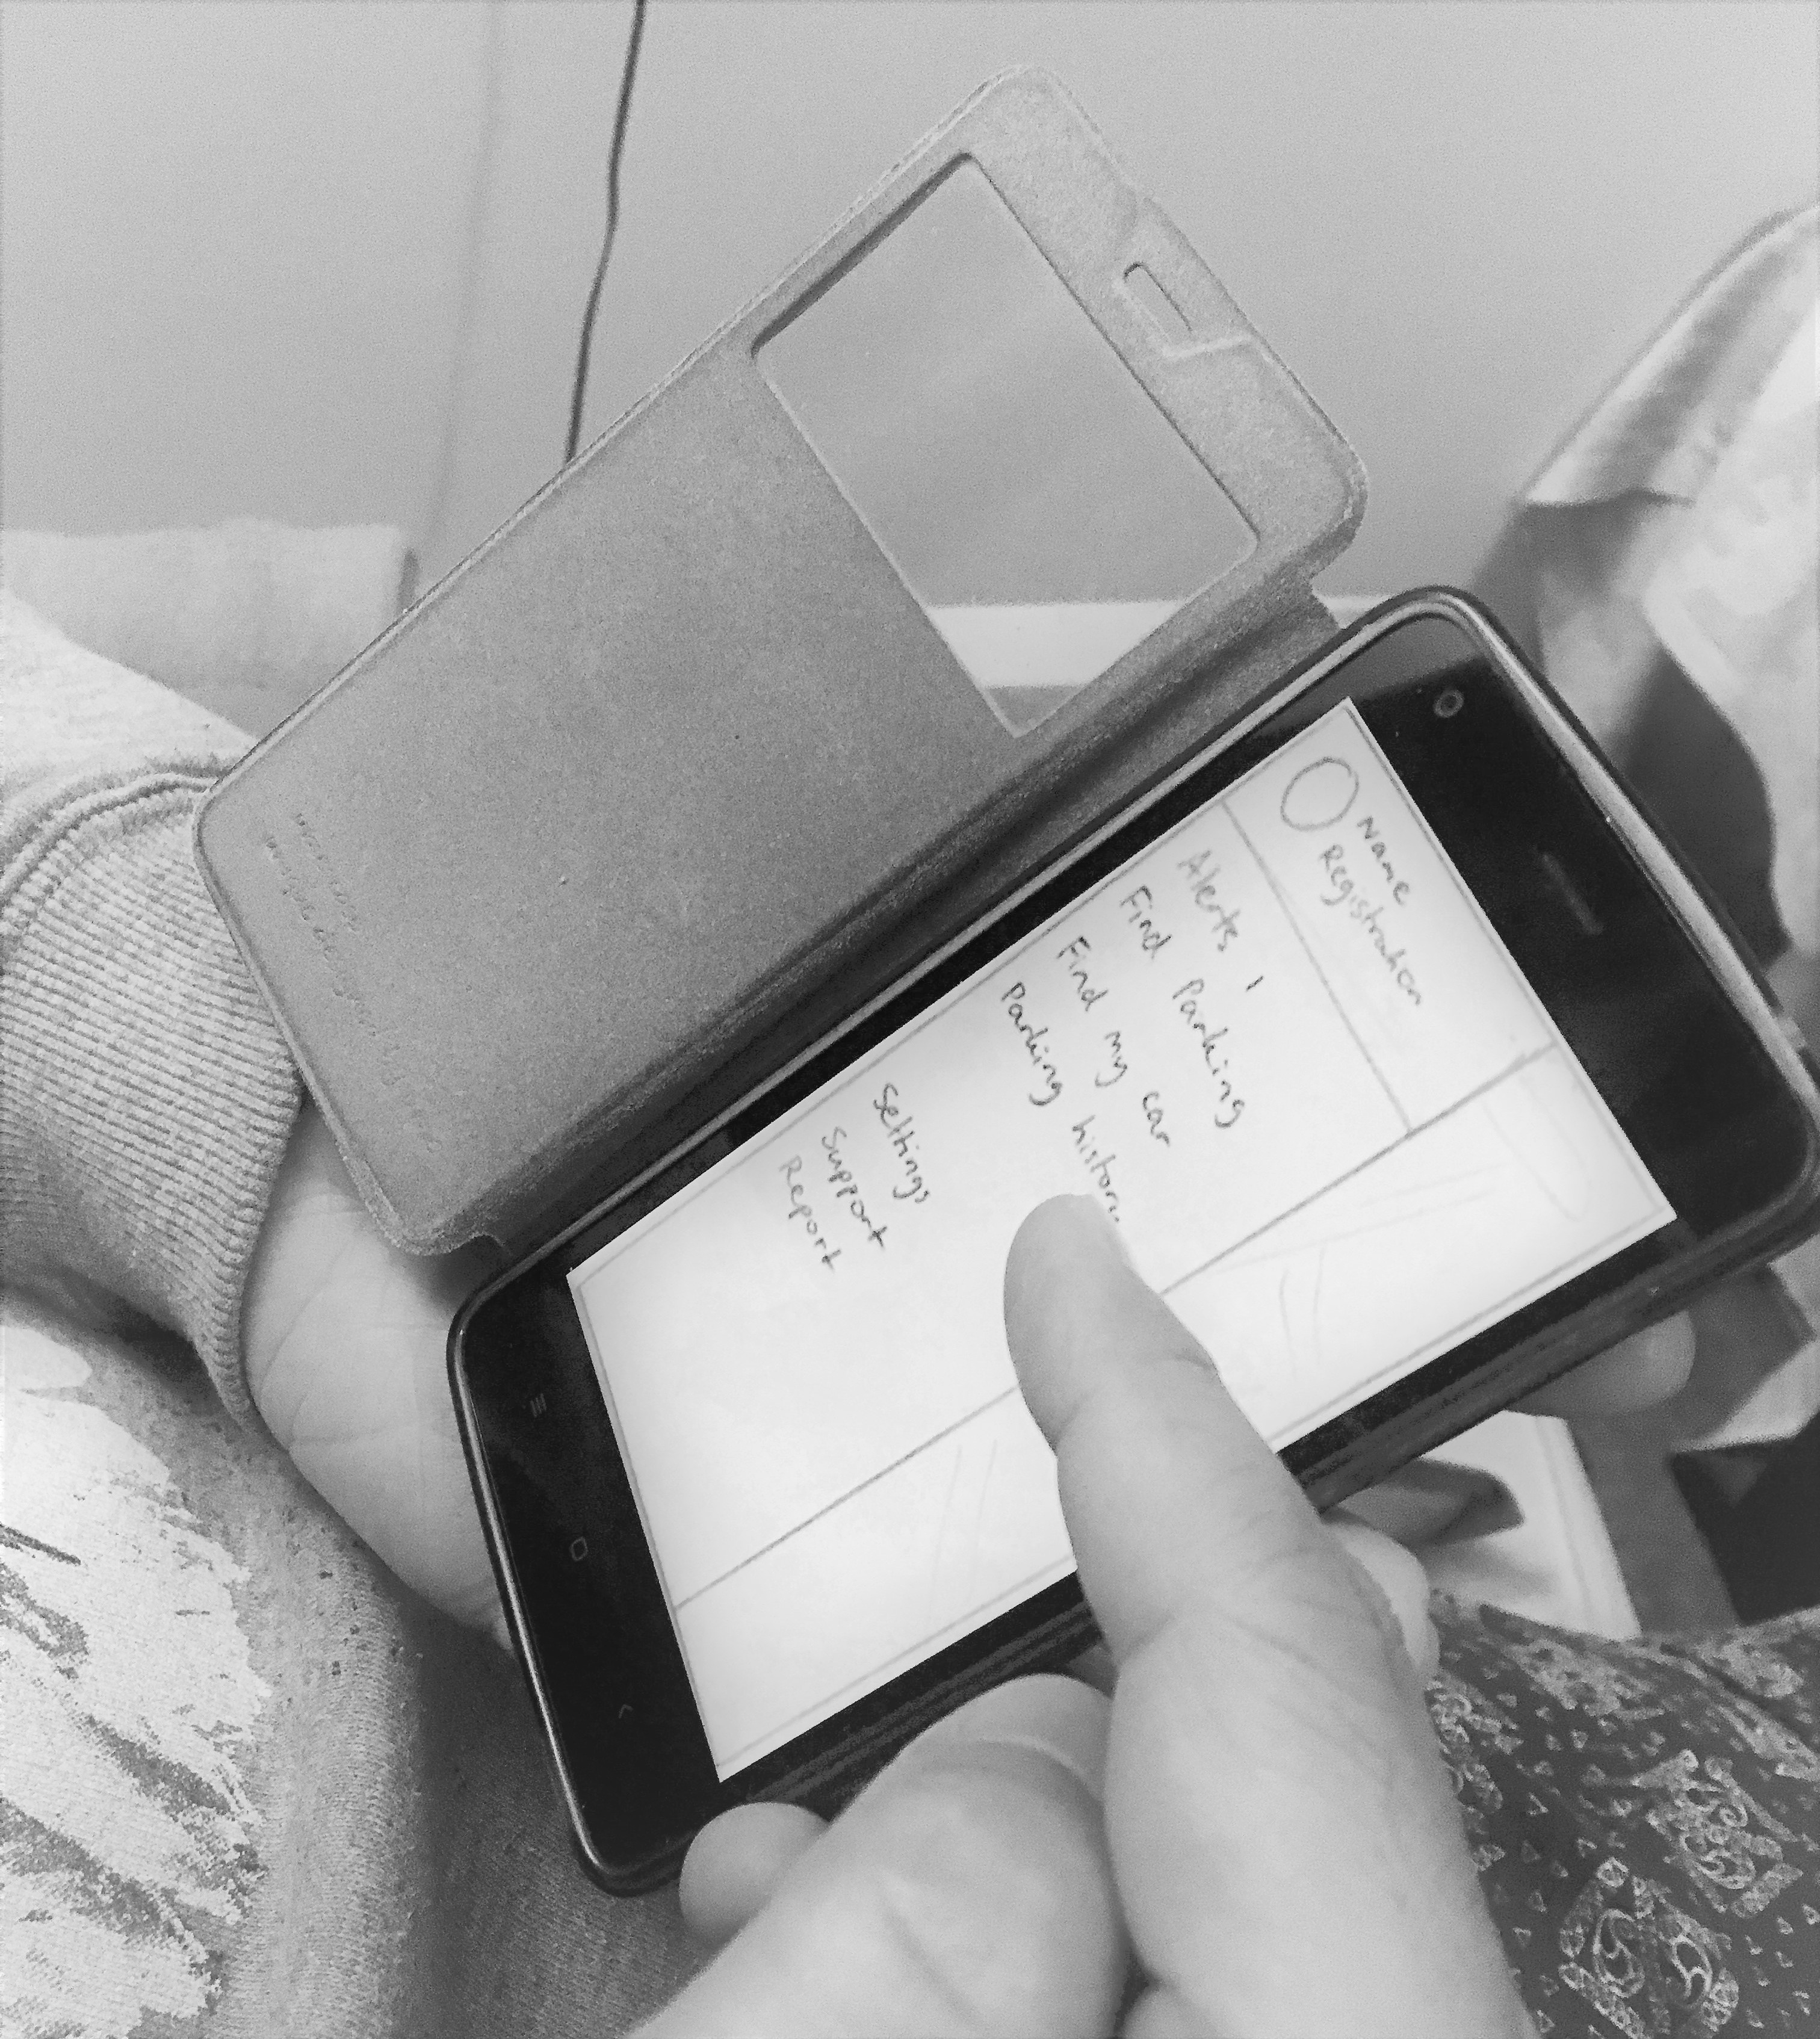 Name
Registration
Alerts 1
Find Parking
Find my car
Parking history
Settings
Support
Report